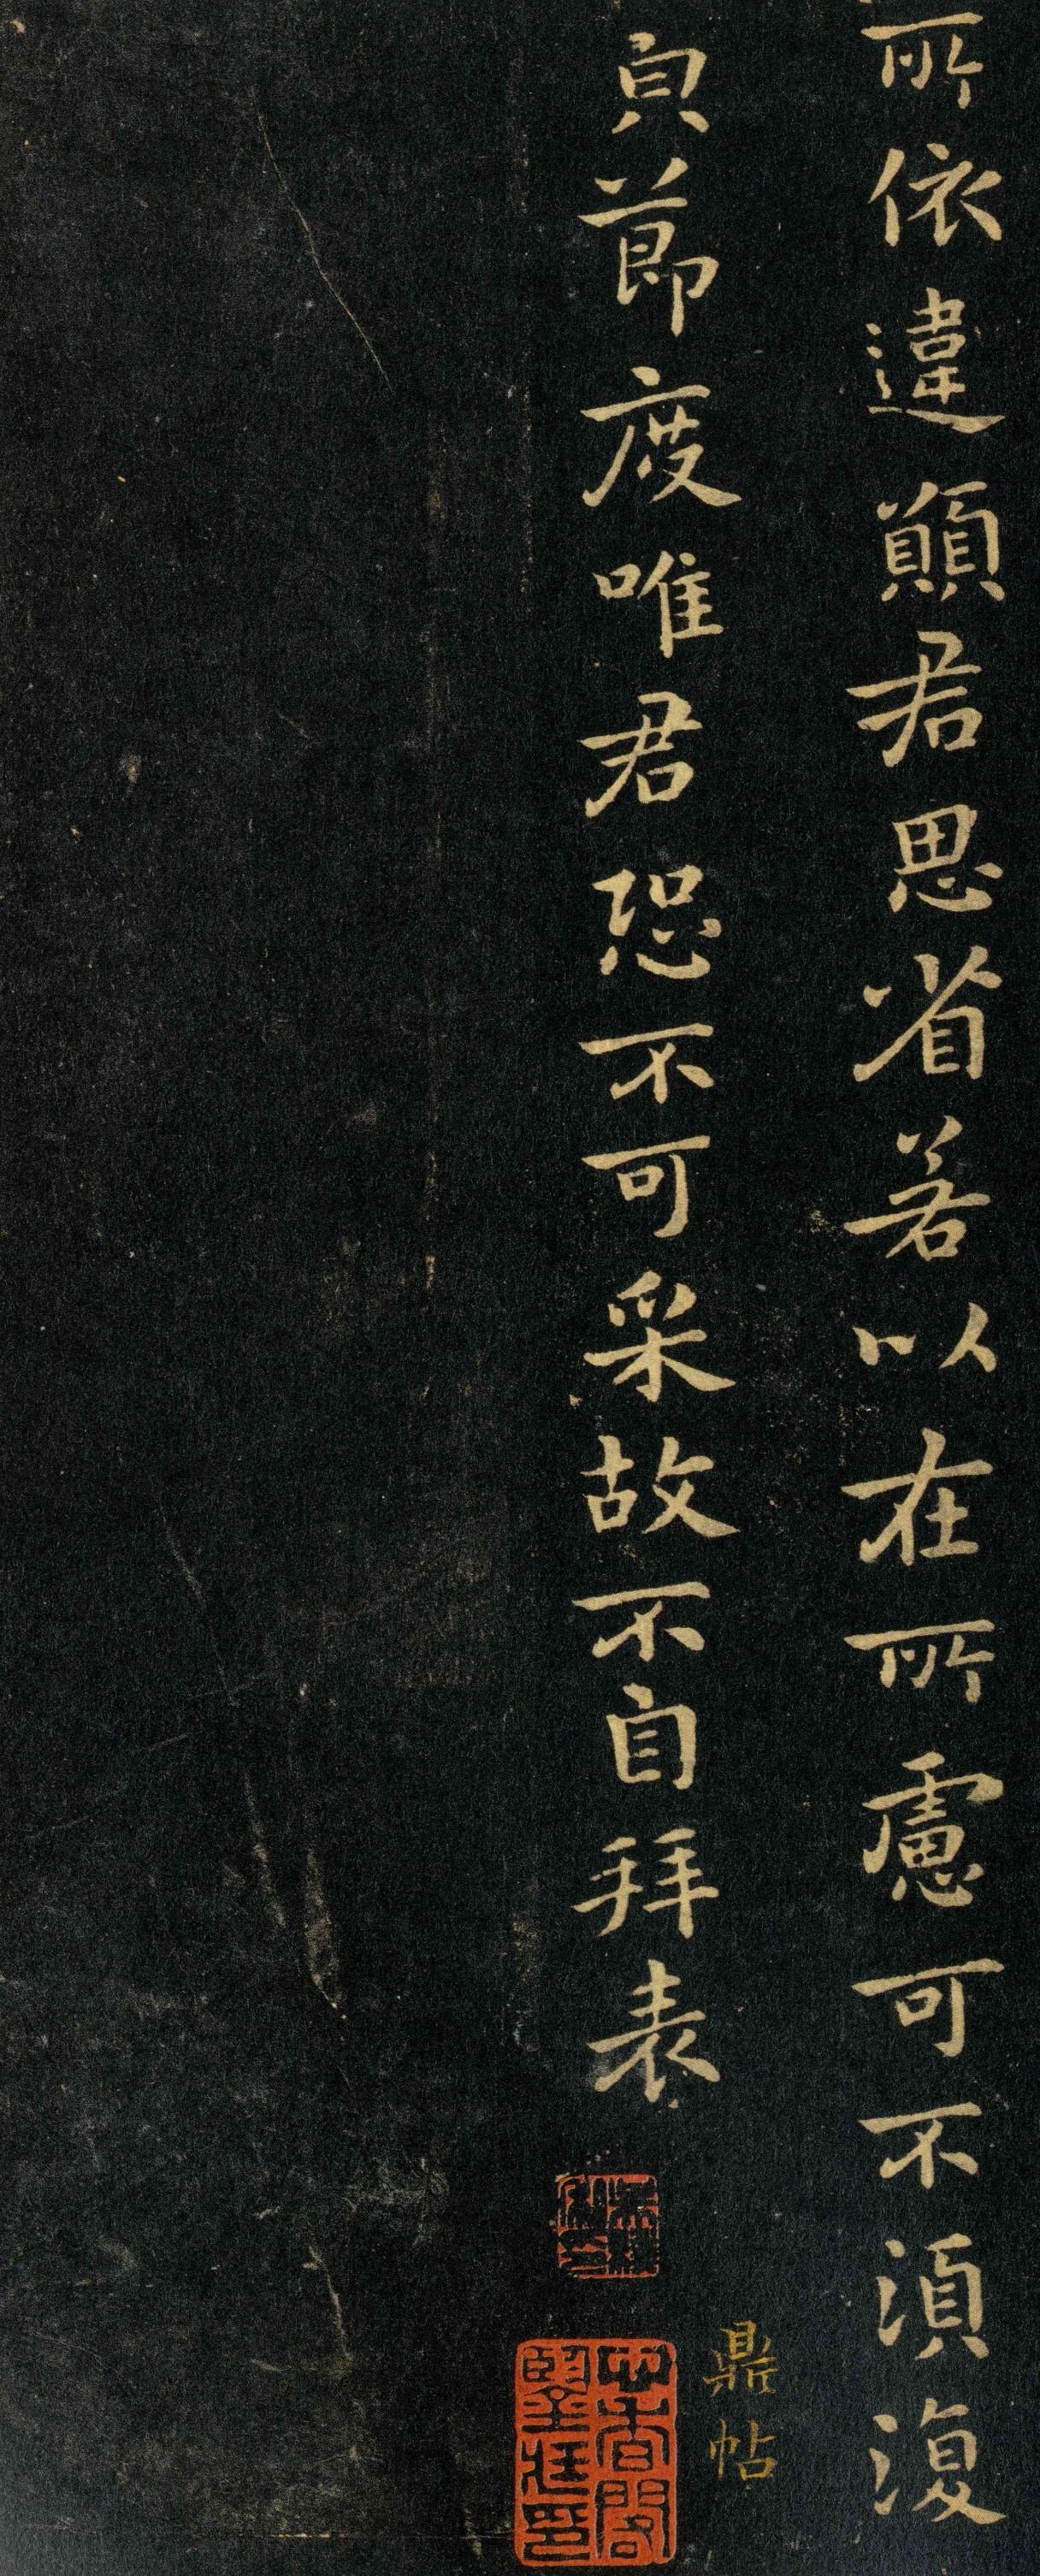 所依違願君思省若以在所慮可不湏復
皃節度唯君恐不可采故不自拜表
鼎帖